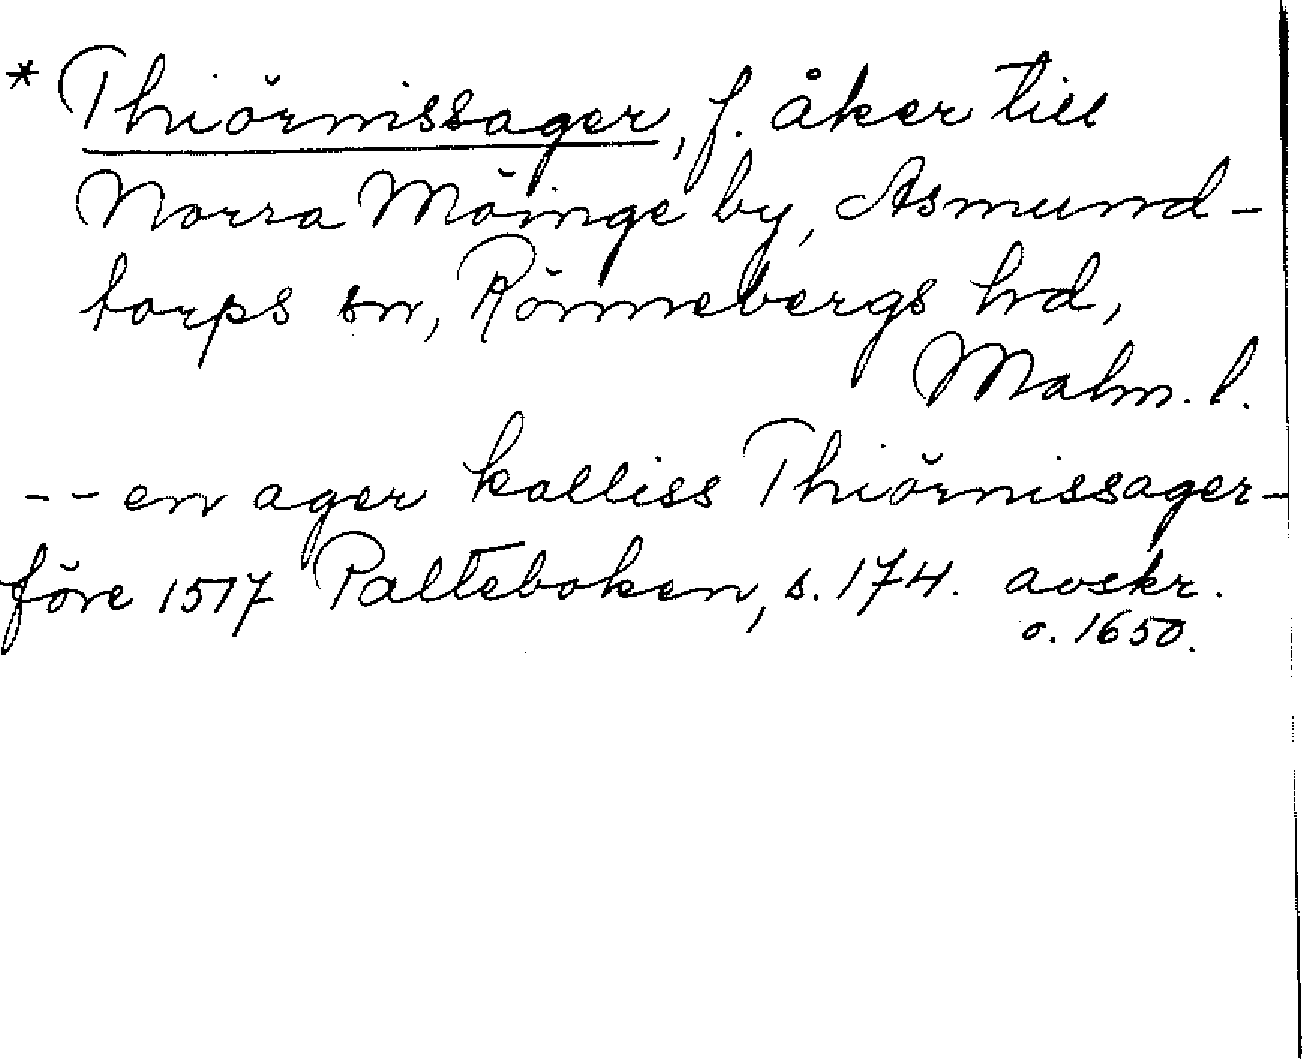 * Thiörnissager, f. åker till
Norra Möinge by, Asmund-
torps sn, Rönnebergs hd,
Malm. l.
-- en ager kalliss Thiörnissager-
före 1517 Palteboken, s. 174. avskr.
o. 1650.